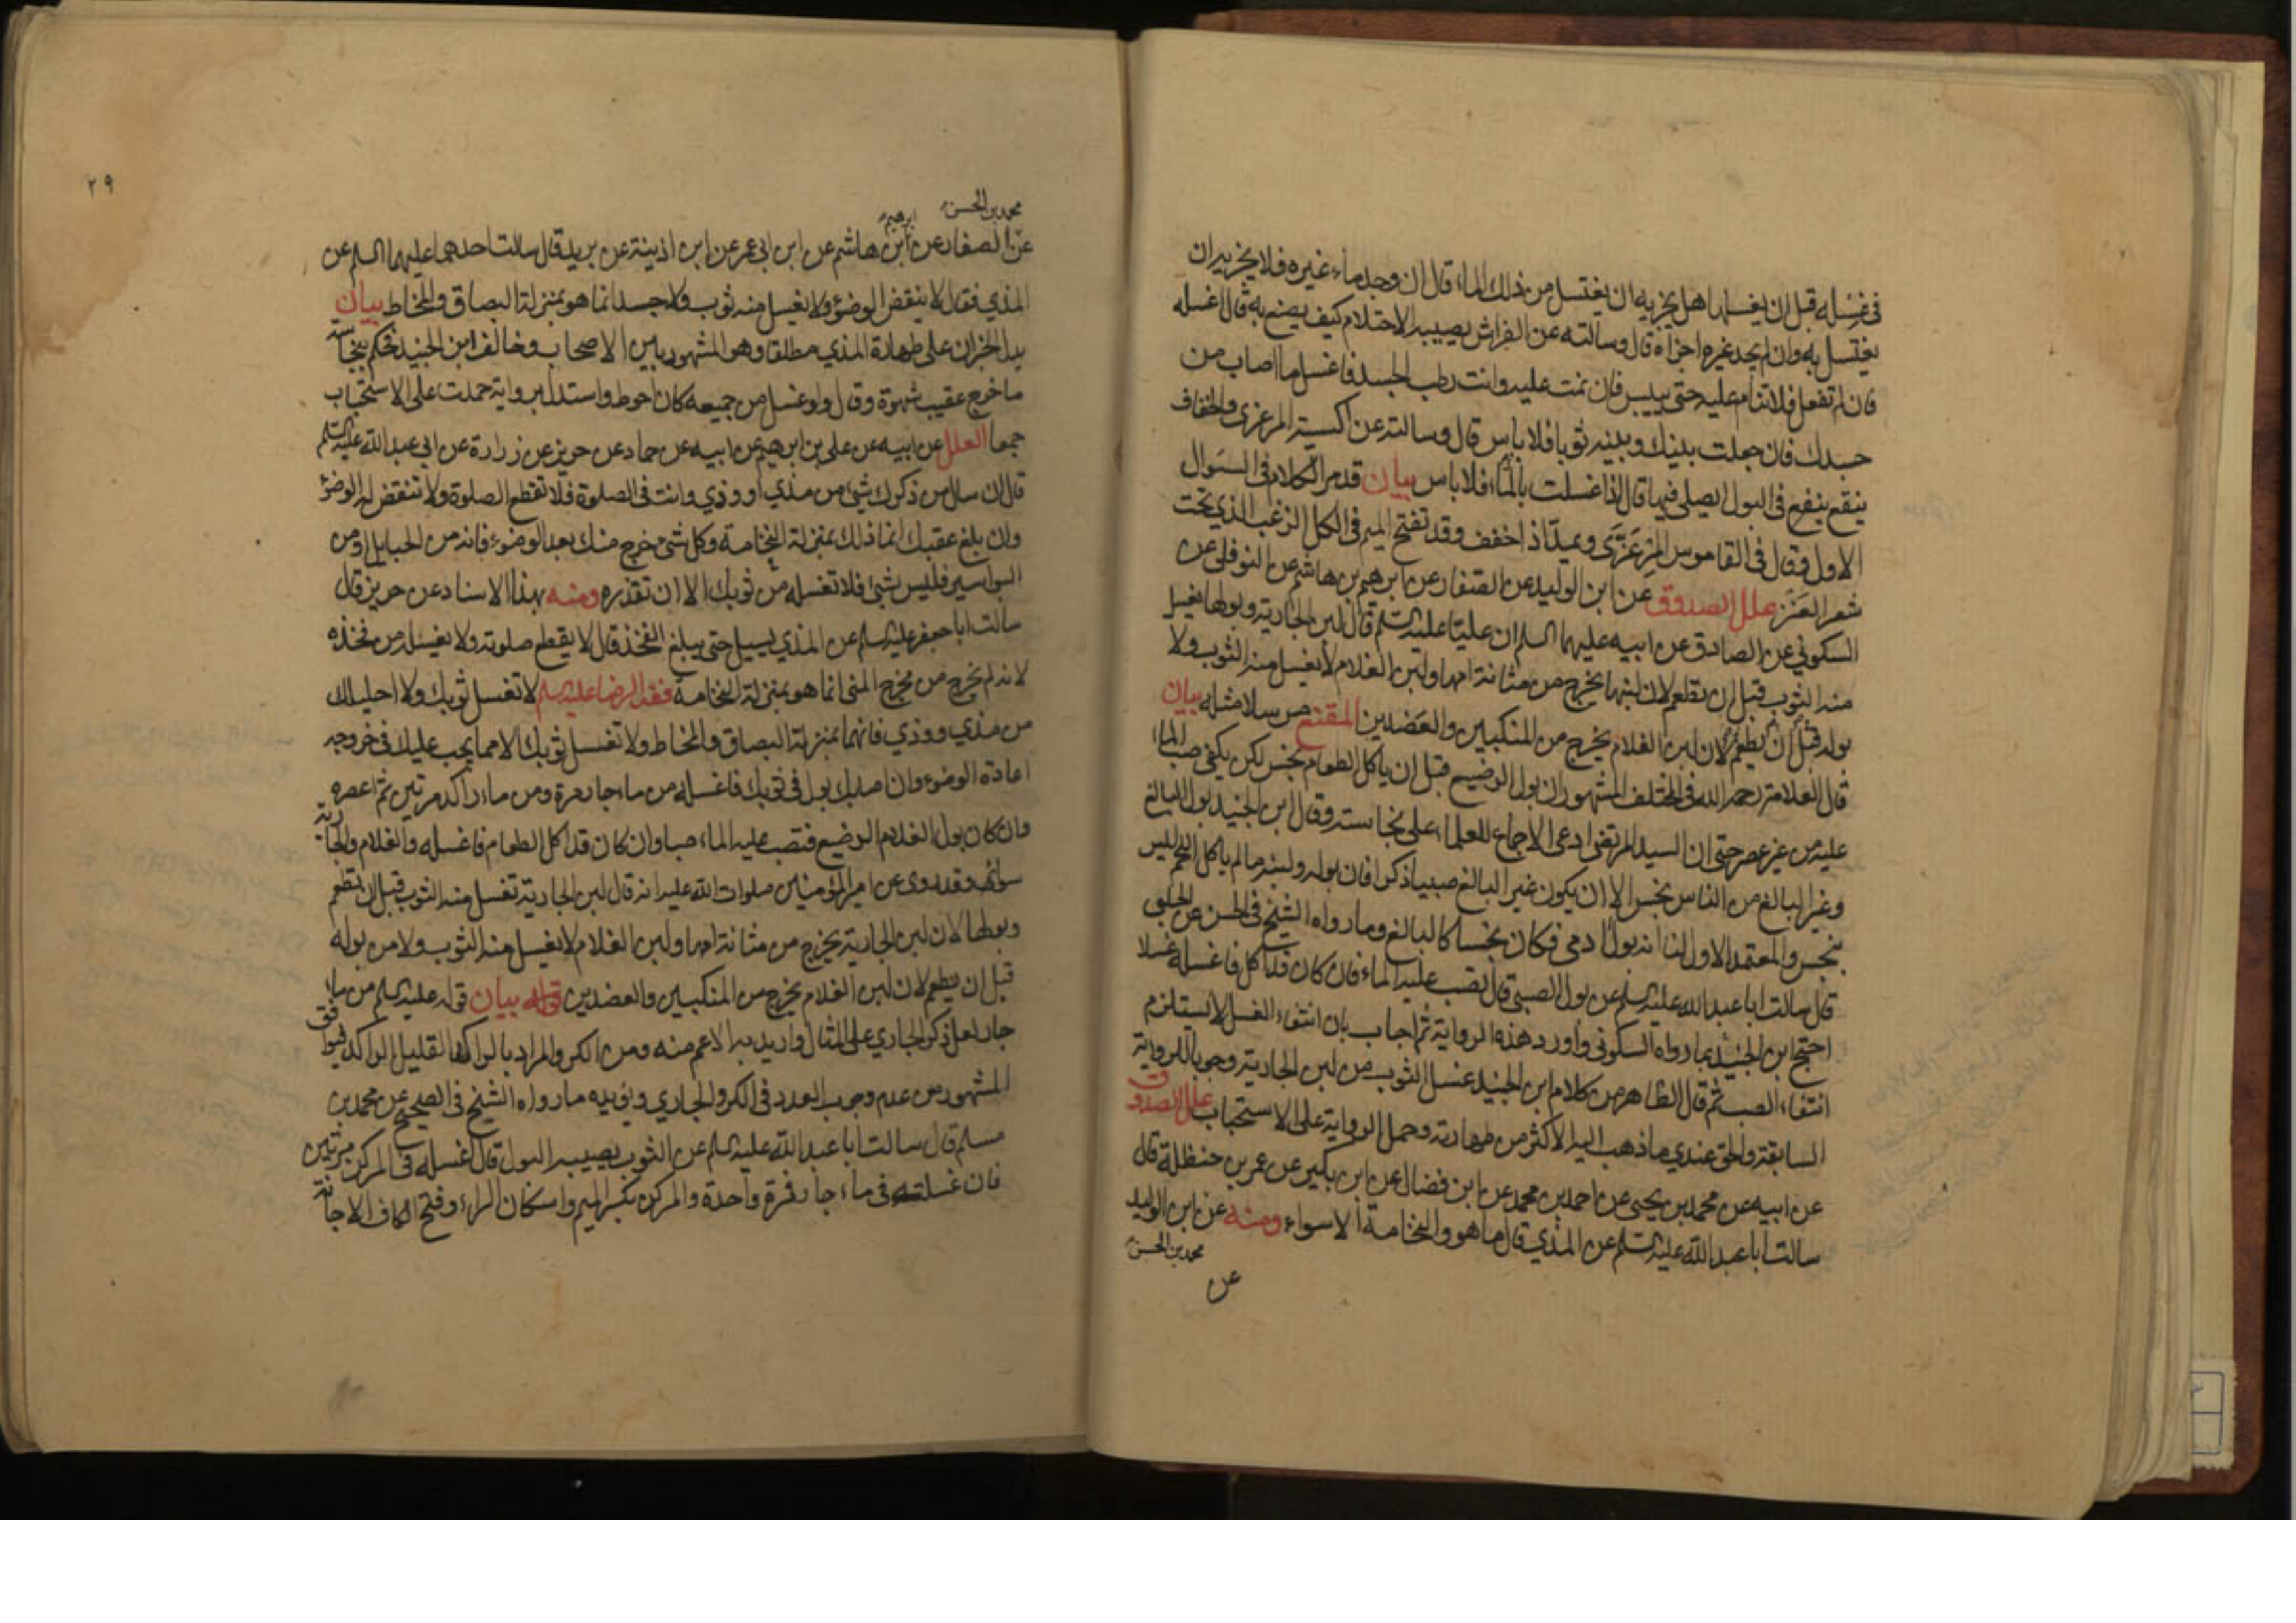 في غسله قبل ان يغسلها هل يجزيه ان يغتسل من ذلك الماء قال ان وجد ماء غيره فلا يجزيه ان
يغتسل به وان لم يجد غيره اجزاه قال وسالته عن الفراش يصيبه الاحتلام كيف يصنع به قال اغسله
فان لم تفعل فلا تنام عليه حتى ييبس فان نمت عليه وانت رطب الجسد فاغسل ما اصاب من
جسدك فان جعلت بينك وبينه ثوبا فلا باس قال وسالته عن اكسية المرعزى والخفاف
ينقع في البول ايصلى فيها قال اذا غسلت بالماء فلا باس بيان قد مر الكلام في السؤال
الاول وقال في القاموس المِرْعِزَّى ويمدّ اذ اخفف وقد تفتح الميم في الكل الزغب الذي تحت
شعر العَنْز علل الصدوق عن ابن الوليد عن الصفار عن ابرهيم بن هاشم عن النوفلي عن
السكوني عن الصادق عن ابيه عليهما السلم ان عليّا عليه السلم قال لبن الجارية وبولها يغسل
منه الثوب قبل ان تطعم لان لبنها يخرج من مثانة امها ولبن الغلام لا يغسل منه الثوب ولا
بوله قبل ان يطعم لان لبن الغلام يخرج من المنكبين والعضدين المقنع مرسلا مثله بيان
قال العلامة رحمه الله في المختلف المشهور ان بول الرضيع قبل ان ياكل الطعام نجس لكن يكفي صب الماء
عليه من غير عصر حتى ان السيد المرتضى ادعى الاجماع للعلماء على نجاسته وقال ابن الجنيد بول البالغ
وغير البالغ من الناس نجس الا ان يكون غير البالغ صبيا ذكرا فان بوله ولبنه ما لم ياكل اللحم ليس
بنجس والمعتمد الاول لنا انه بول ادمي فكان نجسا كالبالغ وما رواه الشيخ في الحسن عن الحلبي
قال سالت ابا عبد الله عليه السلم عن بول الصبي قال تصب عليه الماء فان كان قد اكل فاغسله غسلا
احتج ابن الجنيد بما رواه السكوني واورد هذه الرواية ثم اجاب بان انتفاء الغسل لا يستلزم
انتفاء الصب ثم قال الظاهر من كلام ابن الجنيد غسل الثوب من لبن الجارية وجوبا للرواية
السابقة والحق عندي ما ذهب اليه الاكثر من طهارته وحمل الرواية على الاستحباب علل الصدوق
عن ابيه عن محمد بن يحيى عن احمد بن محمد عن ابن فضال عن ابن بكير عن عمر بن حنظلة قال
سالت ابا عبد الله عليه السلم عن المذي قال ما هو والنخامة الا سواء ومنه عن ابن الوليد
محمد بن الحسن
عن
٢٩
محمد بن الحسن ابرهيم
عن الصفار عن ابن هاشم عن ابن ابي عمر عن ابن اذينة عن بريد قال سالت احدهما عليهما السلم عن
المذي فقال لا ينقض الوضوء ولا يغسل منه ثوب ولا جسد انما هو بمنزلة البصاق والمخاط بيان
يدل الخبران على طهارة المذي مطلقا وهو المشهور بين الاصحاب وخالف ابن الجنيد فحكم بنجاسة
ما خرج عقيب شهوة وقال ولو غسل من جميعه كان احوط واستدل برواية حملت على الاستحباب
جمعا العلل عن ابيه عن علي بن ابرهيم عن ابيه عن حماد عن حريز عن زرارة عن ابي عبد الله عليه السلم
قال ان سال من ذكرك شيء من مذي او وذي وانت في الصلوة فلا تقطع الصلوة ولا تنقض له الوضوء
وان بلغ عقبك انما ذلك بمنزلة النخامة وكل شيء خرج منك بعد الوضوء فانه من الحبايل او من
البواسير فليس بشيء فلا تغسله من ثوبك الا ان تقذره ومنه بهذا الاسناد عن حريز قال
سالت ابا جعفر عليه السلم عن المذي يسيل حتى يبلغ الفخذ قال لا يقطع صلوته ولا يغسله من فخذه
لانه لم يخرج من مخرج المني انما هو بمنزلة النخامة فقه الرضا عليه السلم لا تغسل ثوبك ولا احليلك
من مذي ووذي فانهما بمنزلة البصاق والمخاط ولا تغسل ثوبك الا مما يجب عليك في خروجه
اعادة الوضوء وان اصابك بول في ثوبك فاغسله من ماء جار مرة ومن ماء راكد مرتين ثم اعصره
وان كان بول الغلام الرضيع فتصب عليه الماء صبا وان كان قد اكل الطعام فاغسله والغلام والجارية
سواء وقد روى عن امير المؤمنين صلوات الله عليه انه قال لبن الجارية تغسل منه الثوب قبل ان تطعم
وبولها لان لبن الجارية يخرج من مثانة امها ولبن الغلام لا يغسل منه الثوب ولا من بوله
قبل ان يطعم لان لبن الغلام يخرج من المنكبين والعضدين بيان قوله عليه السلم من ماء
جار لعل ذكر الجاري على المثال واريد به الاعم منه ومن الكر والمراد بالراكد القليل الراكد فيوافق
المشهور من عدم وجوب العدد في الكر والجاري ويؤيده ما رواه الشيخ في الصحيح عن محمد بن
مسلم قال سالت ابا عبد الله عليه السلم عن الثوب يصيبه البول قال اغسله في المركن مرتين
فان غسلته في ماء جار فمرة واحدة والمركن بكسر الميم واسكان الراء وفتح الكاف الاجانة